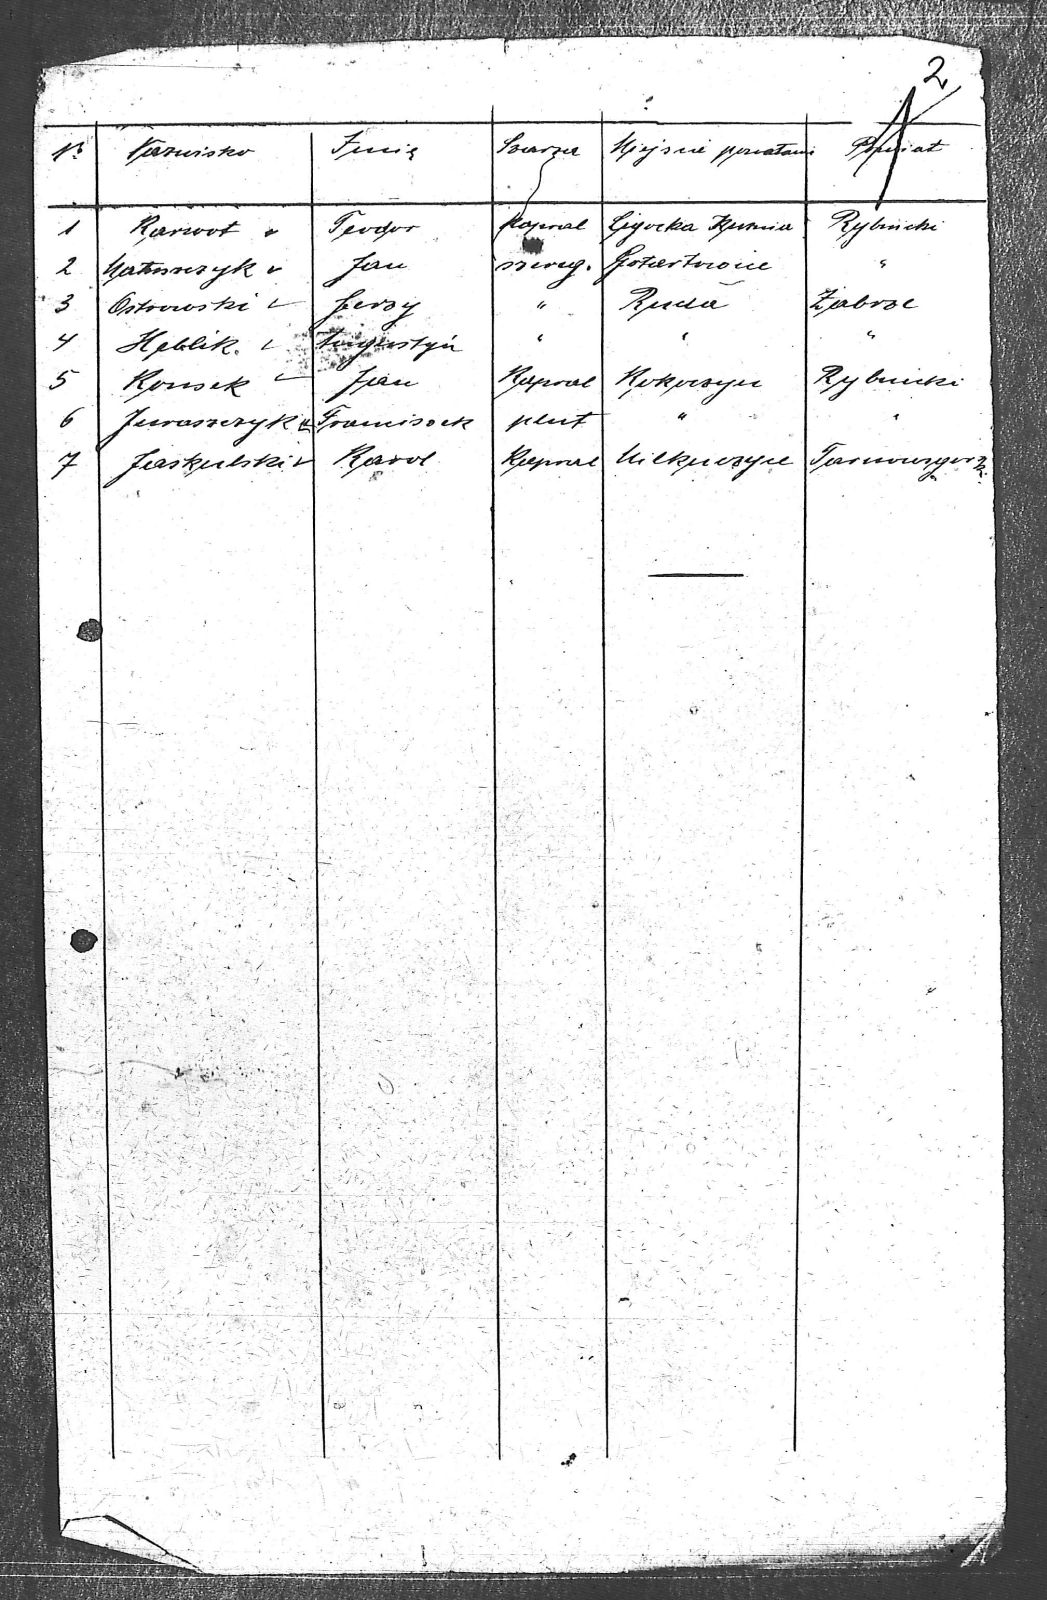 2
Nr Nazwisko Imię Szarża Miejsce powstania Powiat
1 Karwot Teodor Kapral Ligocka Kuźnia Rybnicki
2 Matuszczyk Jan szereg. Gotartowice "
3 Ostrowski Jerzy " Ruda Zabrze
4 Heblik. Augustyn " " "
5 Konsek Jan Kapral Kokoszyce Rybnicki
6 Juraszczyk Franciszek plut " "
7 Jaskulski Karol Kapral Tarnowsgórz.